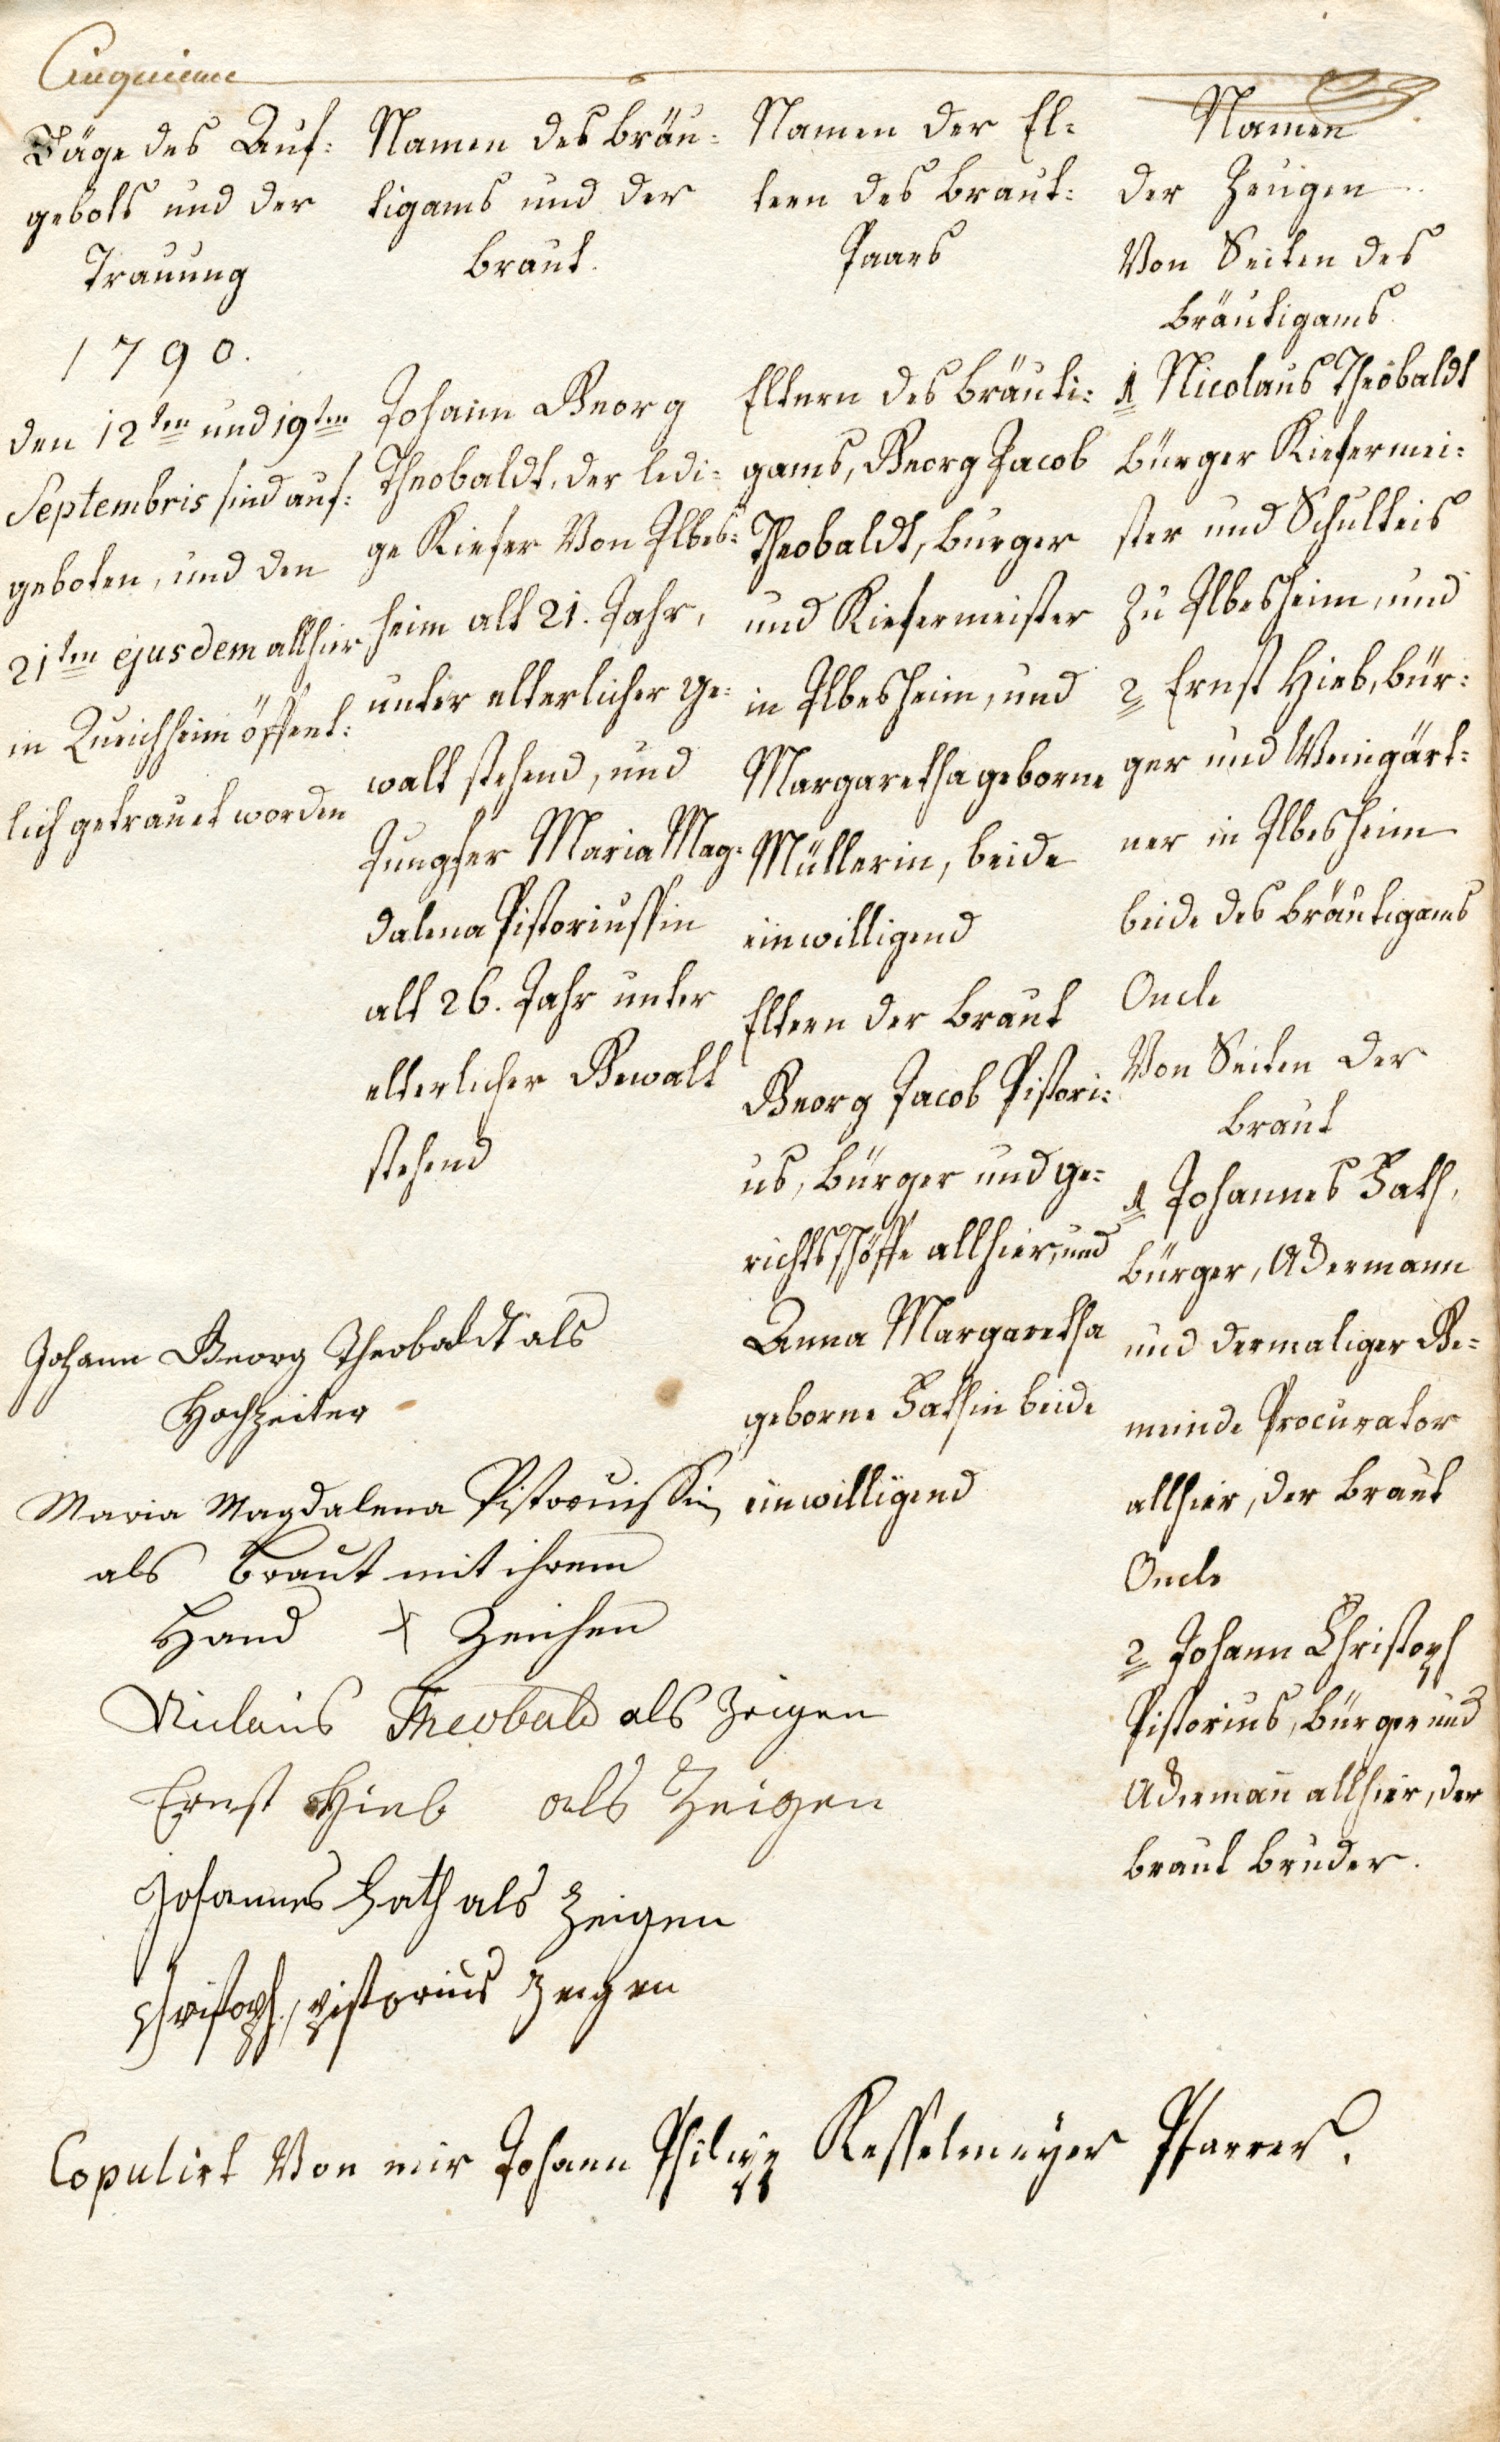 Cinquieme
Täge des Auf=
gebots und der
Trauung
1790.
den 12ten und 19ten
Septembris sind auf=
geboten, und den
21ten ejusdem allhier
in Queichheim öffent=
lich getrauet worden
Namen des Bräu=
tigams und der
Braut.
Johann Georg
Theobaldt, der ledi=
ge Kiefer Von Ilbes=
heim alt 21. Jahr,
unter elterlicher Ge=
walt stehend, und
Jungfer Maria Mag=
dalena Pistoriussin
alt 26. Jahr unter
elterlicher Gewalt
stehend
Namen der El=
tern des Braut=
Paars
Eltern des Bräuti=
gams, Georg Jacob
Theobaldt, Burger
und Kiefermeister
in Ilbesheim, und
Margaretha geborne
Müllerin, beide
einwilligend
Eltern der Braut
Georg Jacob Pistori=
us, Bürger und Ge=
richtsschöffe allhier, und
Anna Margaretha
geborne Hathin beide
einwilligend
Namen
der Zeugen
Von Seiten des
Bräutigams
1 Nicolaus Theobaldt
Bürger Kiefermei=
ster und Schulteis
zu Ilbesheim, und
2 Ernst Hieb, Bür=
ger und Weingärt=
ner in Ilbesheim
beide des Bräutigams
Oncle
Von Seiten der
Braut
1 Johannes Hath,
Bürger, Ackermann
und dermaliger Ge=
meinde Procurator
allhier, der Braut
Oncle
2 Johann Christoph
Pistorius, Bürger und
Ackermañ allhier, der
Braut Bruder.
Johann Georg Theobaldt als
Hochzeiter
Maria Magdalena Pistoriussin
als Braut mit ihrem
Hand x Zeichen
Niclaus Theobald als Zeigen
Ernst Hieb als Zeigen
Johannes Hath als Zeigen
Christoph, pistorius Zeigen
Copulirt Von mir Johann Philipp Kesselmeyer Pfarrer.